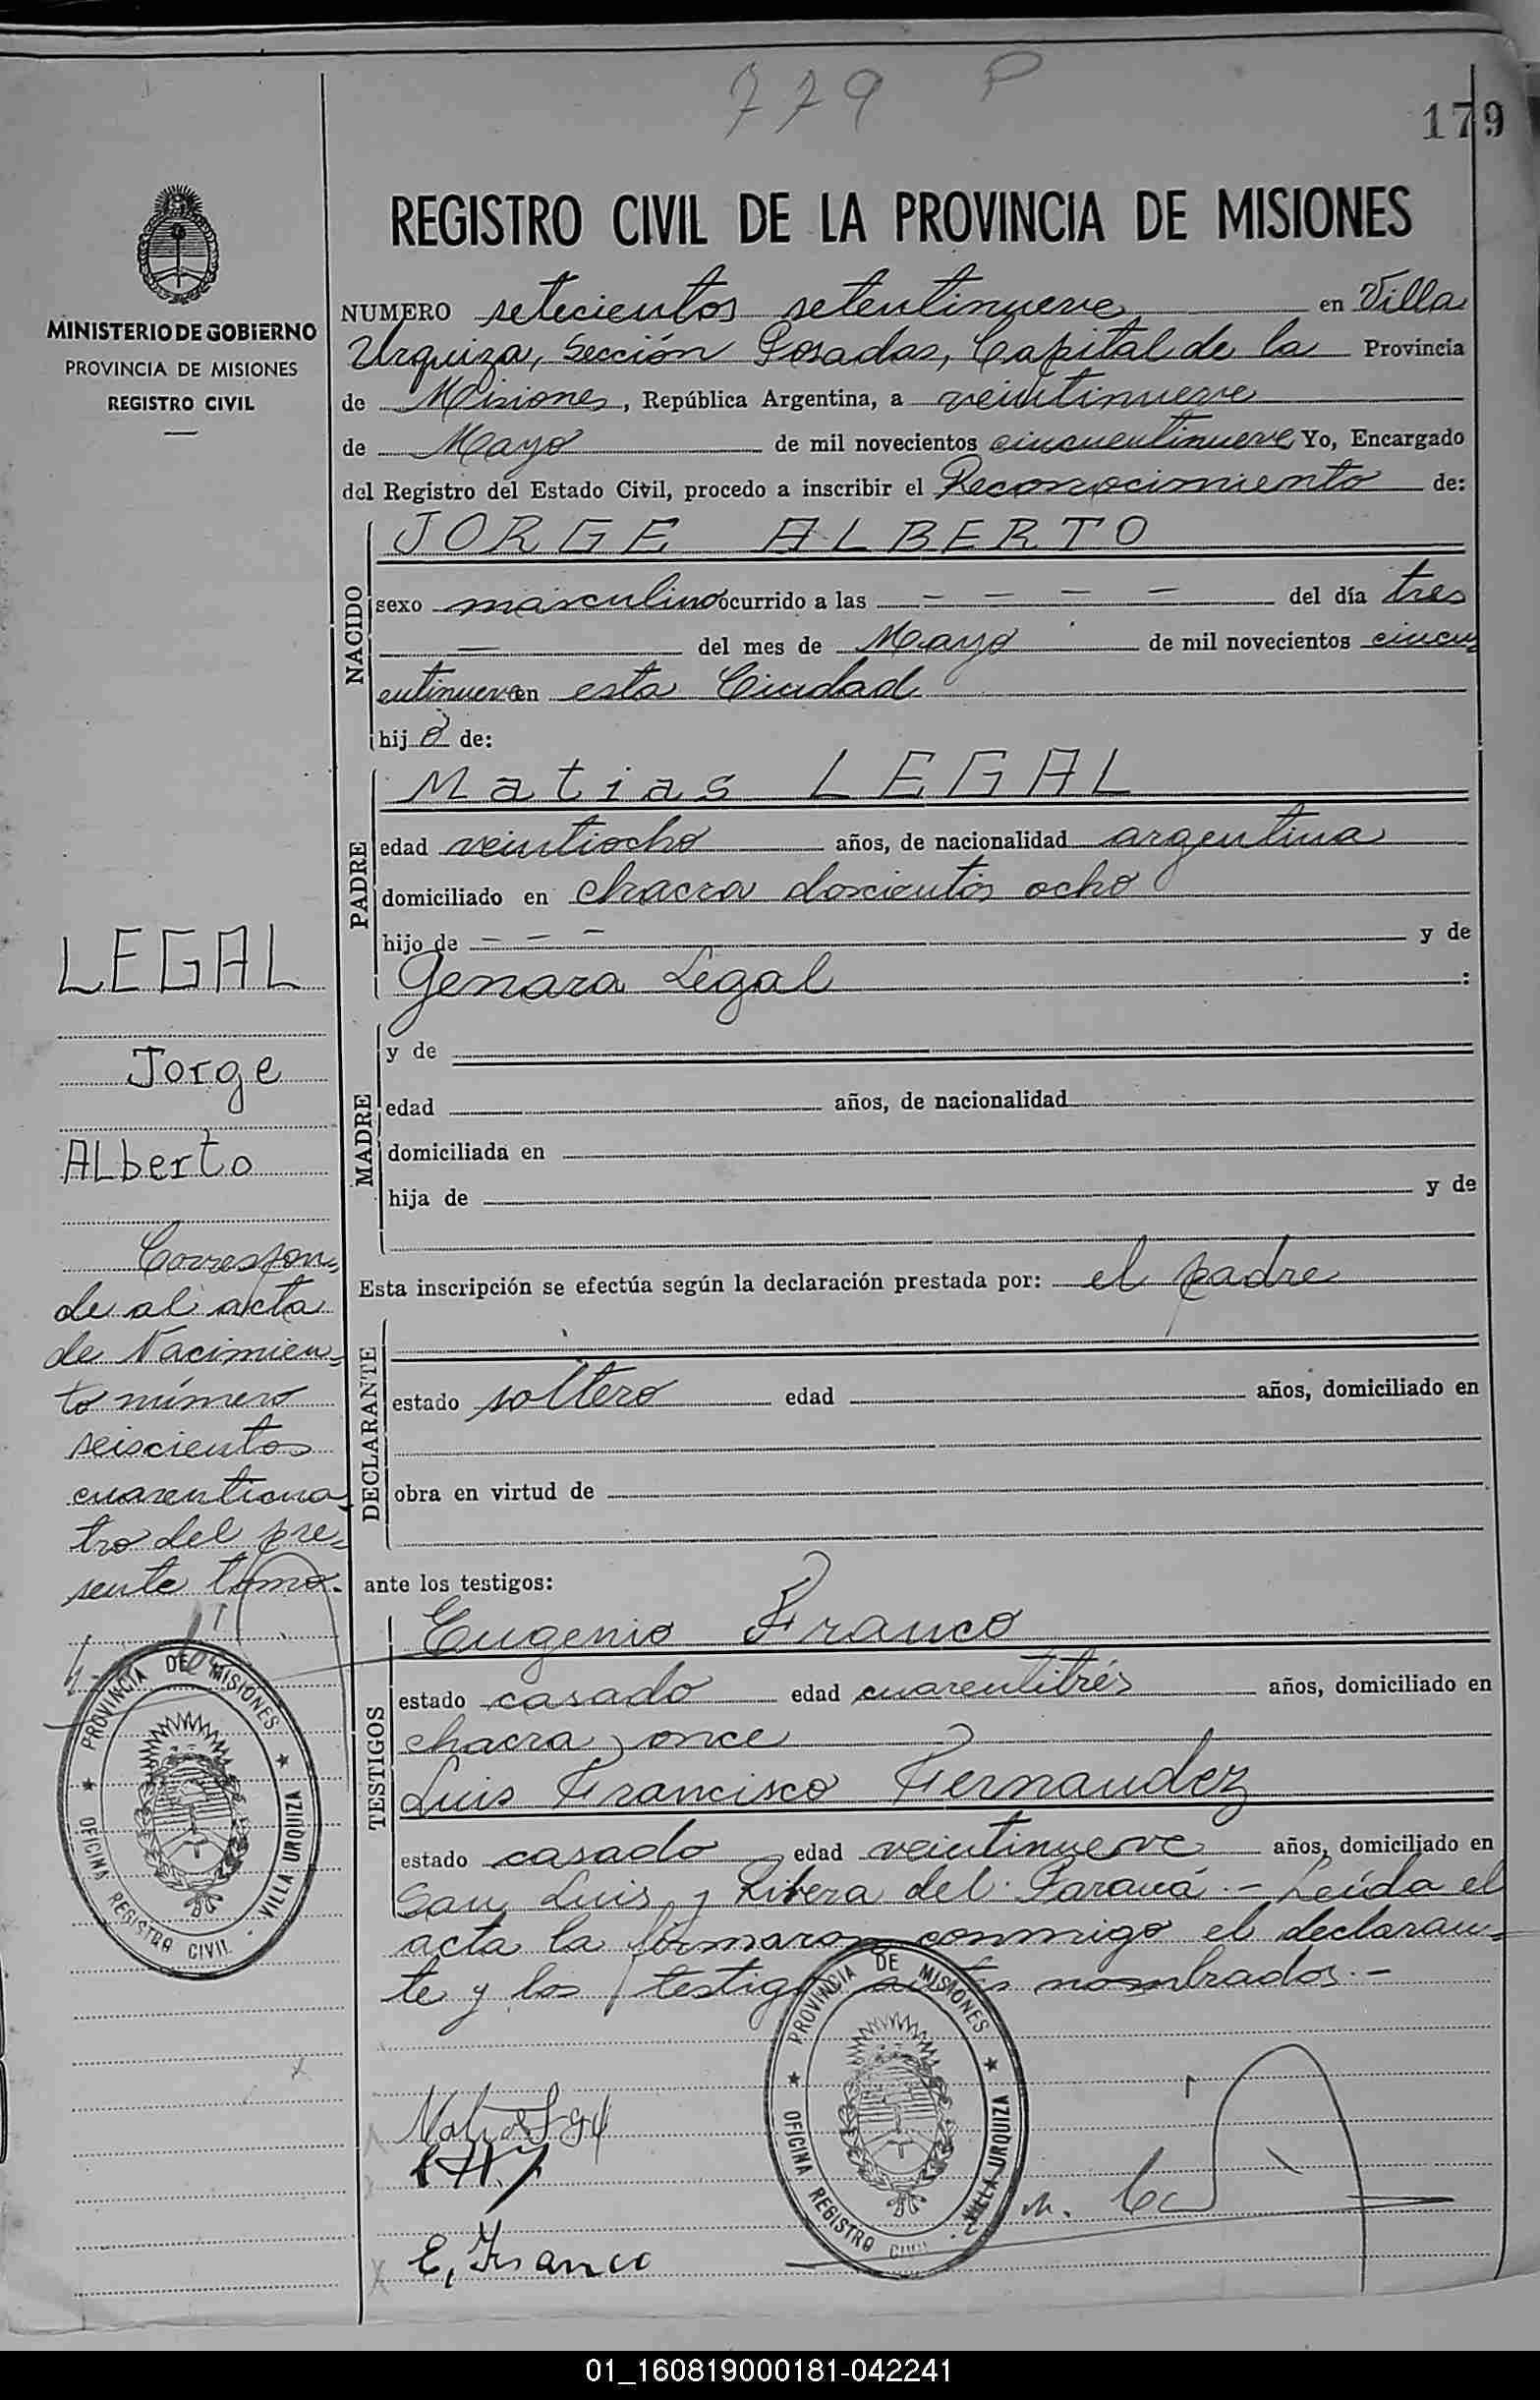 779 P
179
REGISTRO CIVIL DE LA PROVINCIA DE MISIONES
MINISTERIO DE GOBIERNO
PROVINCIA DE MISIONES
REGISTRO CIVIL
NUMERO setecientos setentinueve en Villa
Urquiza, Sección Posadas, Capital de la Provincia
de Misiones, República Argentina, a veintinueve
de Mayo de mil novecientos cincuentinueve Yo, Encargado
del Registro del Estado Civil, procedo a inscribir el Reconocimiento de:
NACIDO
JORGE ALBERTO
sexo masculino ocurrido a las - - - - del día tres
- del mes de Mayo de mil novecientos cincu
entinueve en esta Ciudad
hijo de:
PADRE
Matias LEGAL
edad veintiocho años, de nacionalidad argentina
domiciliado en chacra doscientos ocho
hijo de - - - y de
Genara Legal :
MADRE
y de
edad años, de nacionalidad
domiciliada en
hija de y de
Esta inscripción se efectúa según la declaración prestada por: el padre
DECLARANTE
estado soltero edad años, domiciliado en
obra en virtud de
ante los testigos:
TESTIGOS
Eugenio Franco
estado casado edad cuarentitrés años, domiciliado en
chacra once
Luis Francisco Fernandez
estado casado edad veintinueve años, domiciliado en
San Luis y Ribera del Paraná.- Leída el
acta la firmaron conmigo el declaran-
te y los testigos antes nombrados.-
LEGAL
Jorge
ALberto
Correspon-
de al acta
de Nacimien-
to número
seiscientos
cuarenticua
tro del pre-
sente tomo.
PROVINCIA DE MISIONES
OFICINA REGISTRO CIVIL - VILLA URQUIZA
PROVINCIA DE MISIONES
OFICINA REGISTRO CIVIL - VILLA URQUIZA
E, Franco
01_160819000181-042241